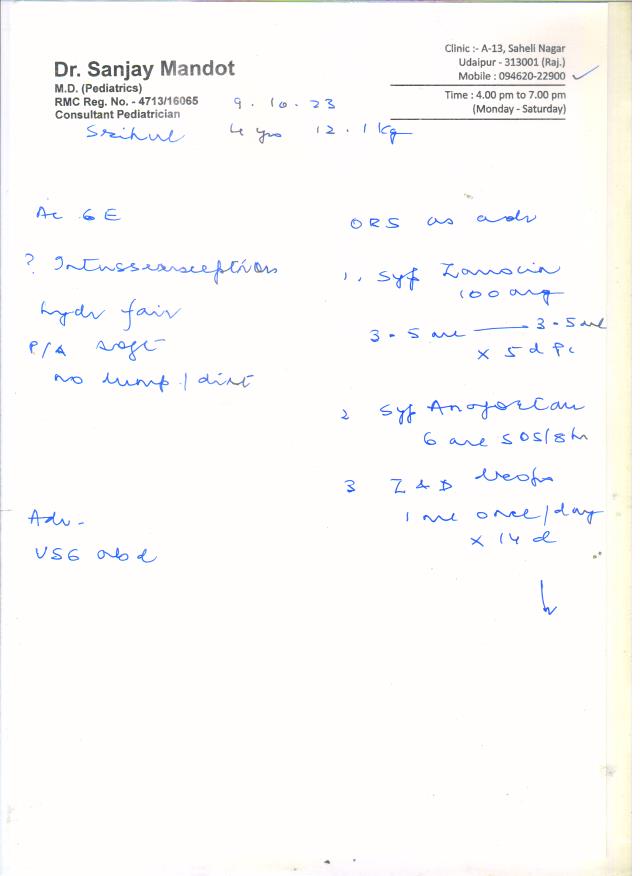 Dr. Sanjay Mandot
M.D. (Pediatrics)
RMC Reg. No. - 4713/16065
Consultant Pediatrician
Clinic :- A-13, Saheli Nagar
Udaipur - 313001 (Raj.)
Mobile : 094620-22900
Time : 4.00 pm to 7.00 pm
(Monday - Saturday)
9.10.23
4 yrs 12.1 kg
Ac GE
? Intussusception
hydr fair
P/A soft
no lump / dist
Adv -
USG abd
ORS as adv
1. Syp
100 mg
3.5 ml — 3.5 ml
x 5 d Pc
2 Syp
6 ml SOS/8 hr
3 Z & D
1 ml once/day
x 14 d